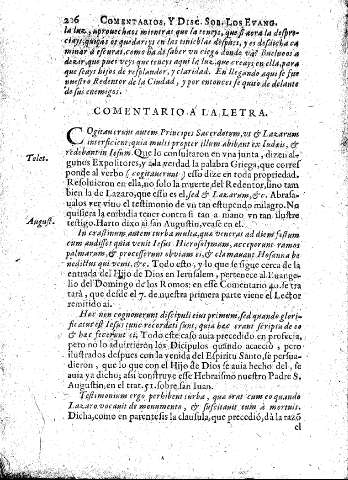 206 COMENTARIOS, Y DISC. SOB. LOS EVANG.
la luz, aprovechaos mientras que la teneys, que si aora la despre-
ciays, quiças os quedareys en las tinieblas despues, y es desdicha ca
minar a escuras, como ha de saber un ciego donde va? Incluuos a
dezir, que pues veys que teneys aqui la luz, que creays en ella, para
que seays hijos de resplandor, y claridad. En llegando aqui se fue
nuestro Redentor de la Ciudad, y por entonces se quitò de delante
de sus enemigos.
COMENTARIO A LA LETRA.
COgitauerunt autem Principes Sacerdotum, vt & Lazarum
interficerent, quia multi propter illum abibant ex Iudæis, &
credebant in Iesum. Que lo consultaron en vna junta, dizen al-
Tolet. gunos Expositores, y a la verdad la palabra Griega, que corres
ponde al verbo (cogitauerunt) esso dize en toda propriedad.
Resoluieron en ella, no solo la muerte del Redentor, sino tam
bien la de Lazaro, que esso es el, sed & Lazarum, &c. Abrasa-
ualos ver viuo el testimonio de vn tan estupendo milagro. No
quisiera la embidia tener contra si tan a mano vn tan ilustre
August. testigo. Harto dixo aì san Augustin, vease en el.
In crastinum autem turba multa, quæ venerat ad diem festum
cum audisset quia venit Iesus Hierosolymam, acceperunt ramos
palmarum, & processerunt obviam ei, & clamabant Hosanna be
nedictus qui venit, &c. Todo esto, y lo que se sigue cerca de la
entrada del Hijo de Dios en Ierusalem, pertenece al Euange-
lio del Domingo de los Ramos: en esse Comentario 40. se tra
tarà, que desde el 7. de nuestra primera parte viene el Lector
remitido aì.
Hæc non cognouerunt discipuli eius primum, sed quando glori-
ficatus est Iesus tunc recordati sunt, quia hæc erant scripta de eo
& hæc fecerunt ei. Todo este caso auia precedido en profecia,
pero no lo aduirtieron los Dicipulos quando acaeciò, pero
ilustrados despues con la venida del Espiritu Santo, se persua-
dieron, que lo que con el Hijo de Dios se auia hecho del, se
auia ya dicho; assi construye esse Hebraismo nuestro Padre S.
Augustin, en el trat. 51. sobre san Iuan.
Testimonium ergo perhibebat turba, quæ erat cum eo quando
Lazarum vocauit de monumento, & suscitauit eum à mortuis.
Dicha, como en parentesis la clausula, que precediò, dà la razõ
el